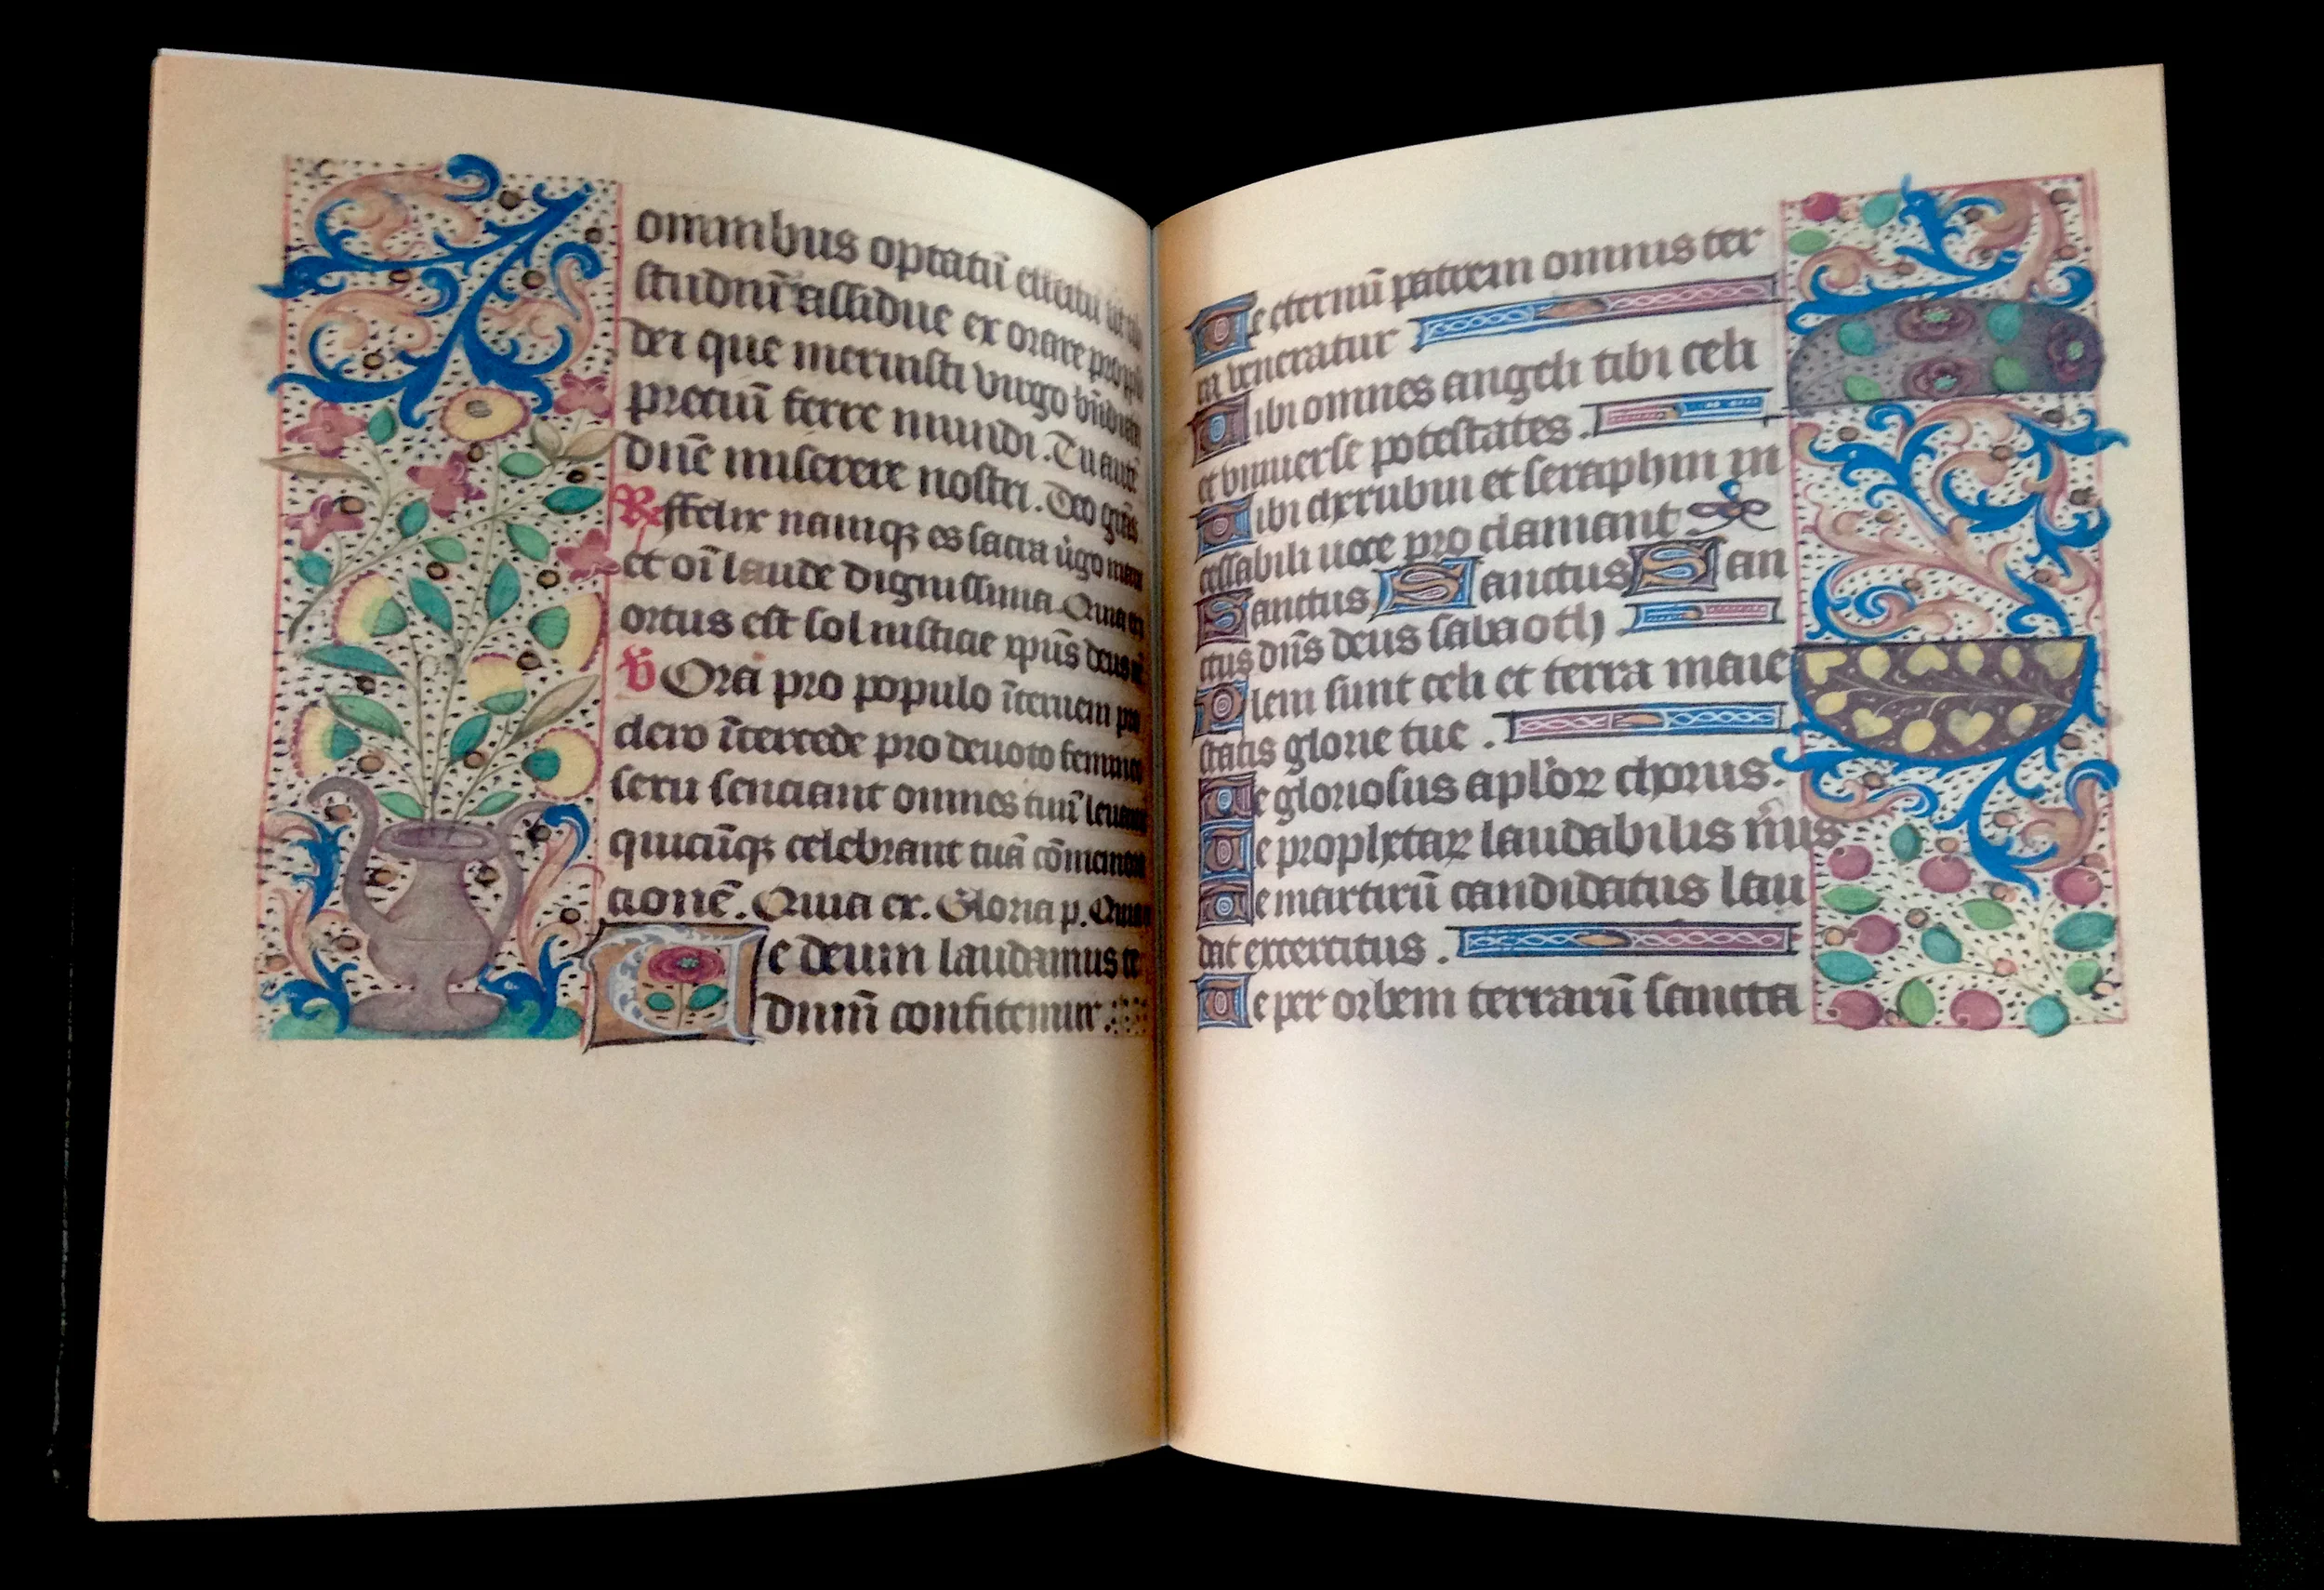 omnibus optatū effectū ut sit
studiū assidue ex orare pro populo
dei que meruisti virgo bn̄dicta
preciū ferre mundi. Tu autē
dn̄e miserere nostri. Deo grās
R̸ ffelix namqꝫ es sacra v̇go maria
et oī laude dignissima. Quia ex
ortus est sol iusticie xp̄us deus nr̄
V̸ Ora pro populo īterueni pro
clero ītercede pro deuoto femineo
sexu senciant omnes tuū leuamen
quicūqꝫ celebrant tuā cōmemora
cionē. Quia ex. Gloria p. Quia
Te deum laudamus te
dn̄m̄ confitemur.
Te eternū patrem omnis ter
ra veneratur
Tibi omnes angeli tibi celi
et vniuerse potestates.
Tibi cherubin et seraphin in
cessabili uoce pro clamant
Sanctus Sanctus San
ctus dn̄s deus sabaoth
Pleni sunt celi et terra maie
statis glorie tue.
Te gloriosus apl'oꝝ chorus.
Te prophetaꝝ laudabilis nūs
Te martirū candidatus lau
dat excercitus.
Te per orbem terrarū sancta